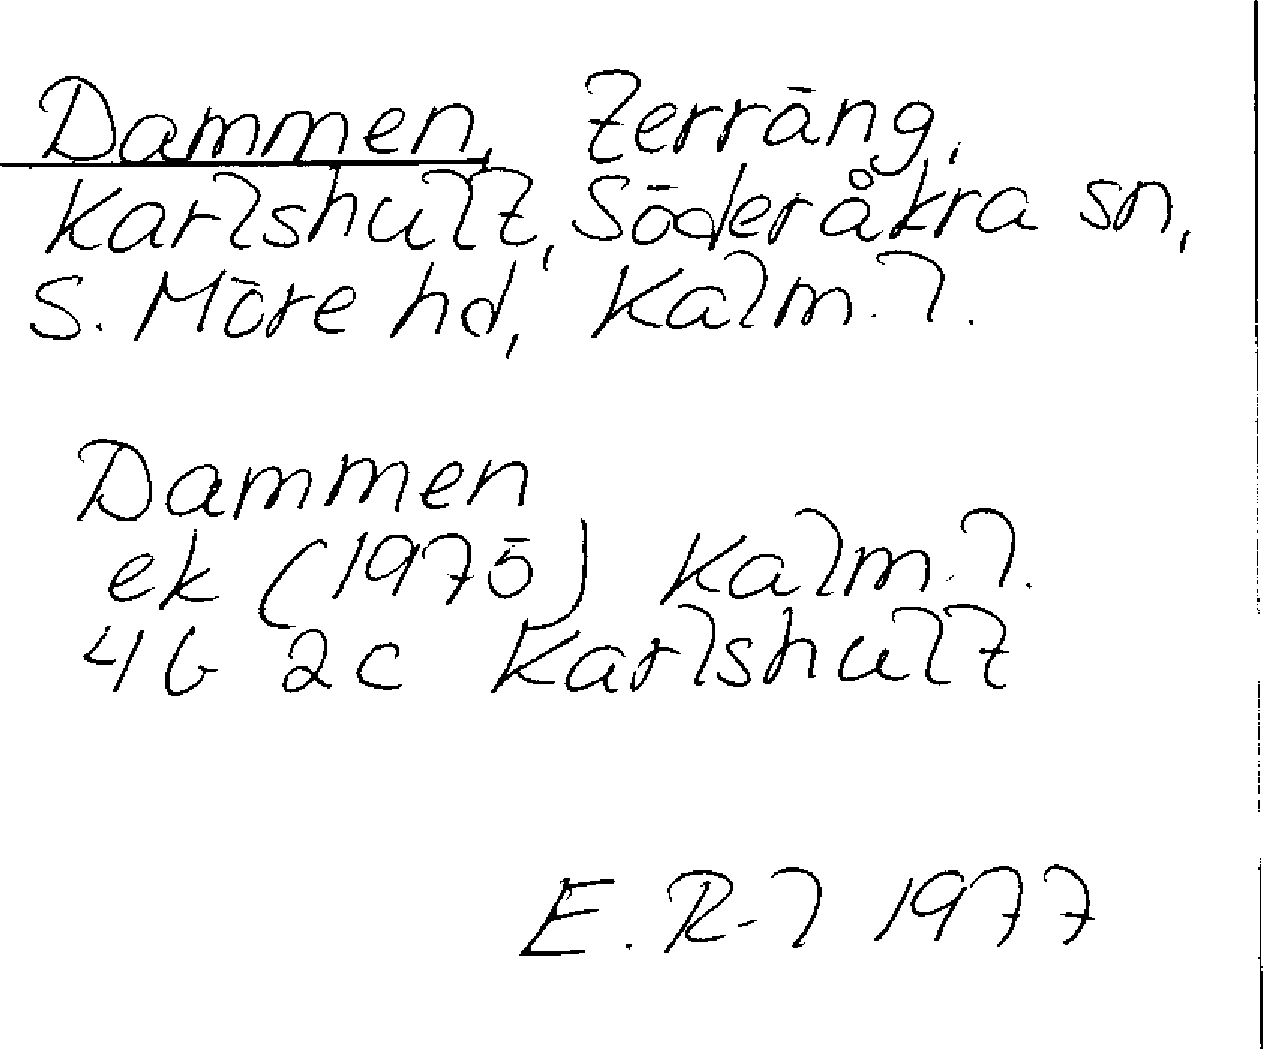 Dammen, terräng,
Karlshult, Söderåkra sn,
S. Möre hd, Kalm. l.
Dammen
ek (1975) Kalm. l.
4G 2c Karlshult
E. R-l 1977